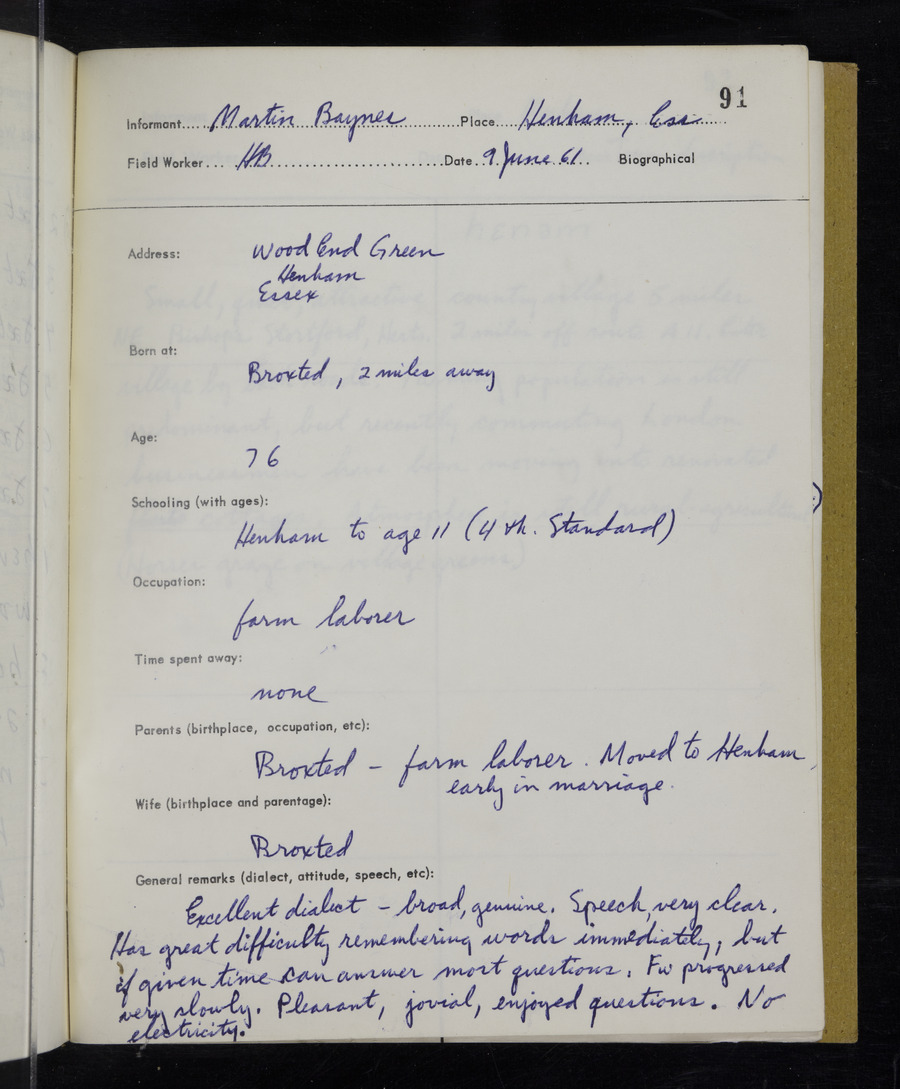 91
Informant.....Martin Baynes..............Place...Henham, Ess.......
Field Worker....HB..........................Date..9 June 61.. Biographical
Address: Wood End Green
Henham
Essex
Born at:
Broxted, 2 miles away
Age:
76
Schooling (with ages):
Henham to age 11 (4th. Standard)
Occupation:
farm laborer
Time spent away:
none
Parents (birthplace, occupation, etc):
Broxted – farm laborer. Moved to Henham
early in marriage.
Wife (birthplace and parentage):
Broxted
General remarks (dialect, attitude, speech, etc):
Excellent dialect – broad, genuine. Speech, very clear.
Has great difficulty remembering words immediately, but
if given time can answer most questions. Fw progressed
very slowly. Pleasant, jovial, enjoyed questions. No
electricity.